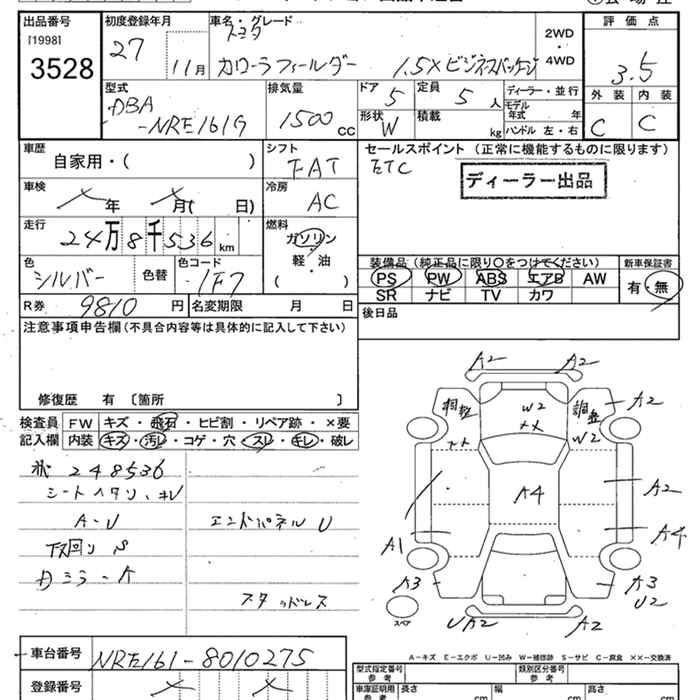 出品番号
[1998]
3528
初度登録年月
27
11月
車名・グレード
トヨタ
カローラフィールダー 1.5X ビジネスパッケージ
2WD
・
4WD
評価点
3.5
外装 内装
C C
型式
DBA
-NRE161G
排気量
1500
cc
ドア
5
定員
5 人
形状
W
積載
kg
ディーラー・並行
モデル
年式 年
ハンドル 左・右
車歴
自家用・( )
シフト
FAT
セールスポイント (正常に機能するものに限ります)
ETC
ディーラー出品
車検
年 月( 日)
冷房
AC
走行
24万8千536km
燃料
ガソリン
・
軽・油
( )
色
シルバー
色替
色コード
1F7
装備品 (純正品に限り○をつけてください)
PS PW ABS エアB AW
SR ナビ TV カワ
新車保証書
有・無
R券 9810 円
名変期限 月 日
後日品
注意事項申告欄 (不具合内容等は具体的に記入して下さい)
修復歴 有 〔箇所 〕
検査員
記入欄
FW キズ・飛石・ヒビ割・リペア跡・×要
内装 キズ・汚レ・コゲ・穴・スレ・キレ・破レ
248536
シートヘタリ、キレ
A・U
エンドパネル U
下回り S
スタッドレス
A2 A2
A2
W2
W2
A4
A2
A4
A1
A3
A3
U2
UA2
A2
スペア
A-キズ E-エクボ U-凹み W-補修跡 S-サビ C-腐食 ××-交換済
車台番号
NRE161-8010275
登録番号
型式指定番号
参考
類別区分番号
参考
車庫証明用
参考
長さ cm
幅 cm
高さ cm